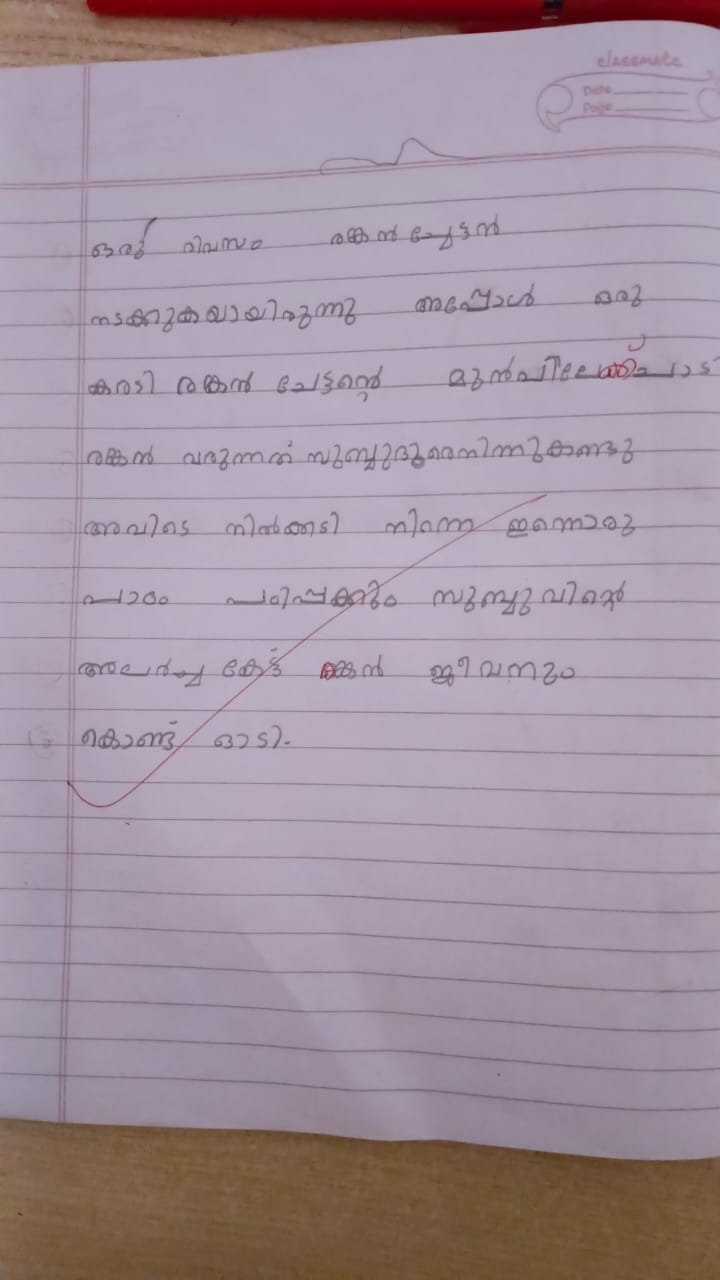 classmate
Date
Page
ഒരു ദിവസം രങ്കൻ ചേട്ടൻ
നടക്കുകയായിരുന്നു അപ്പോൾ ഒരു
കരടി രങ്കൻ ചേട്ടന്റെ മുൻപിലേത്ത്ചാടി
രങ്കൻ വരുന്നത് സുബ്ബുദൂരെനിന്നുകണ്ടു
അവിടെ നിൽക്കടി നിന്നെ ഇന്നൊരു
പാഠം പഠിപ്പക്കും സുബ്ബുവിന്റെ
അലർച്ച കേട്ട് രങ്കൻ ജീവനും
കൊണ്ട് ഓടി.